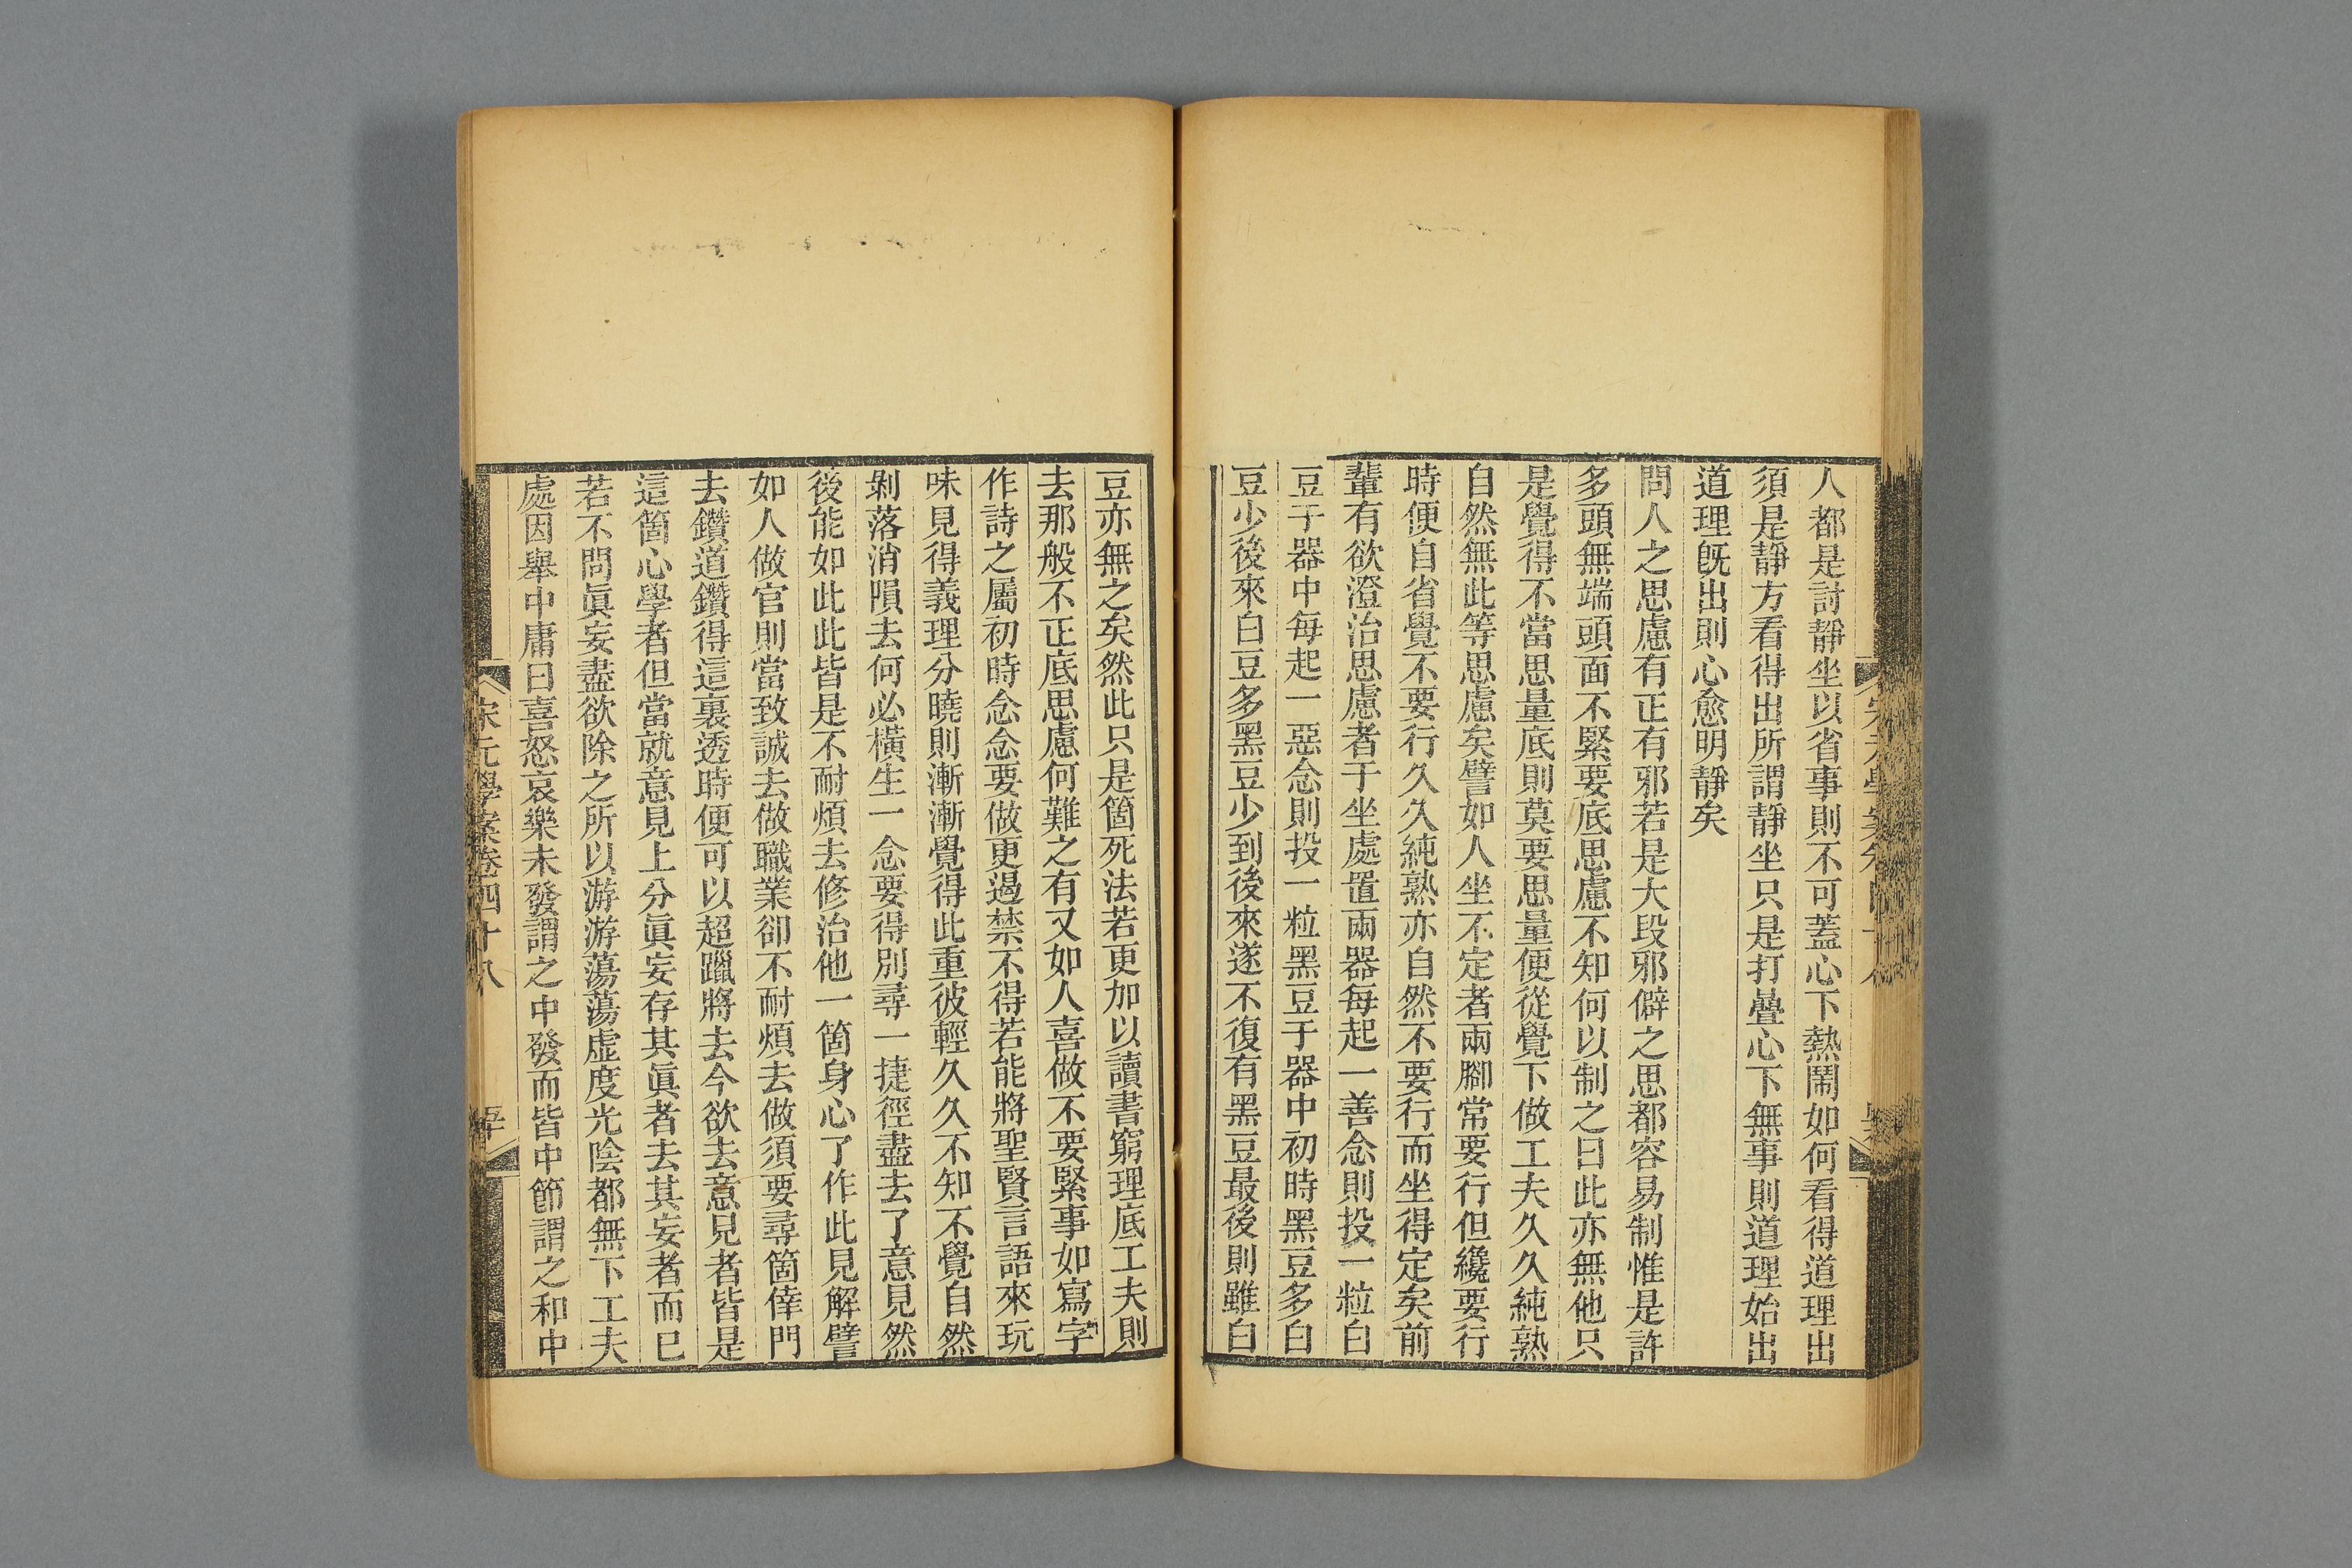 人都是討靜坐以省事則不可蓋心下熱鬧如何看得道理出
須是靜方看得出所謂靜坐只是打曡心下無事則道理始出
道理旣出則心愈明靜矣
問人之思慮有正有邪若是大段邪僻之思都容易制惟是許
多頭無端頭面不緊要底思慮不知何以制之曰此亦無他只
是覺得不當思量底則莫要思量便從覺下做工夫久久純熟
自然無此等思慮矣譬如人坐不定者兩腳常要行但纔要行
時便自省覺不要行久久純熟亦自然不要行而坐得定矣前
輩有欲澄治思慮者于坐處置兩器每起一善念則投一粒白
豆于器中每起一惡念則投一粒黑豆于器中初時黑豆多白
豆少後來白豆多黑豆少到後來遂不復有黑豆最後則雖白
豆亦無之矣然此只是箇死法若更加以讀書窮理底工夫則
去那般不正底思慮何難之有又如人喜做不要緊事如寫字
作詩之屬初時念念要做更遏禁不得若能將聖賢言語來玩
味見得義理分曉則漸漸覺得此重彼輕久久不知不覺自然
剝落消隕去何必橫生一念要得別尋一捷徑盡去了意見然
後能如此此皆是不耐煩去修治他一箇身心了作此見解譬
如人做官則當致誠去做職業卻不耐煩去做須要尋箇倖門
去鑽道鑽得這裏透時便可以超躐將去今欲去意見者皆是
這箇心學者但當就意見上分眞妄存其眞者去其妄者而已
若不問眞妄盡欲除之所以游游蕩蕩虛度光陰都無下工夫
處因舉中庸曰喜怒哀樂未發謂之中發而皆中節謂之和中
宋元學案卷四十八